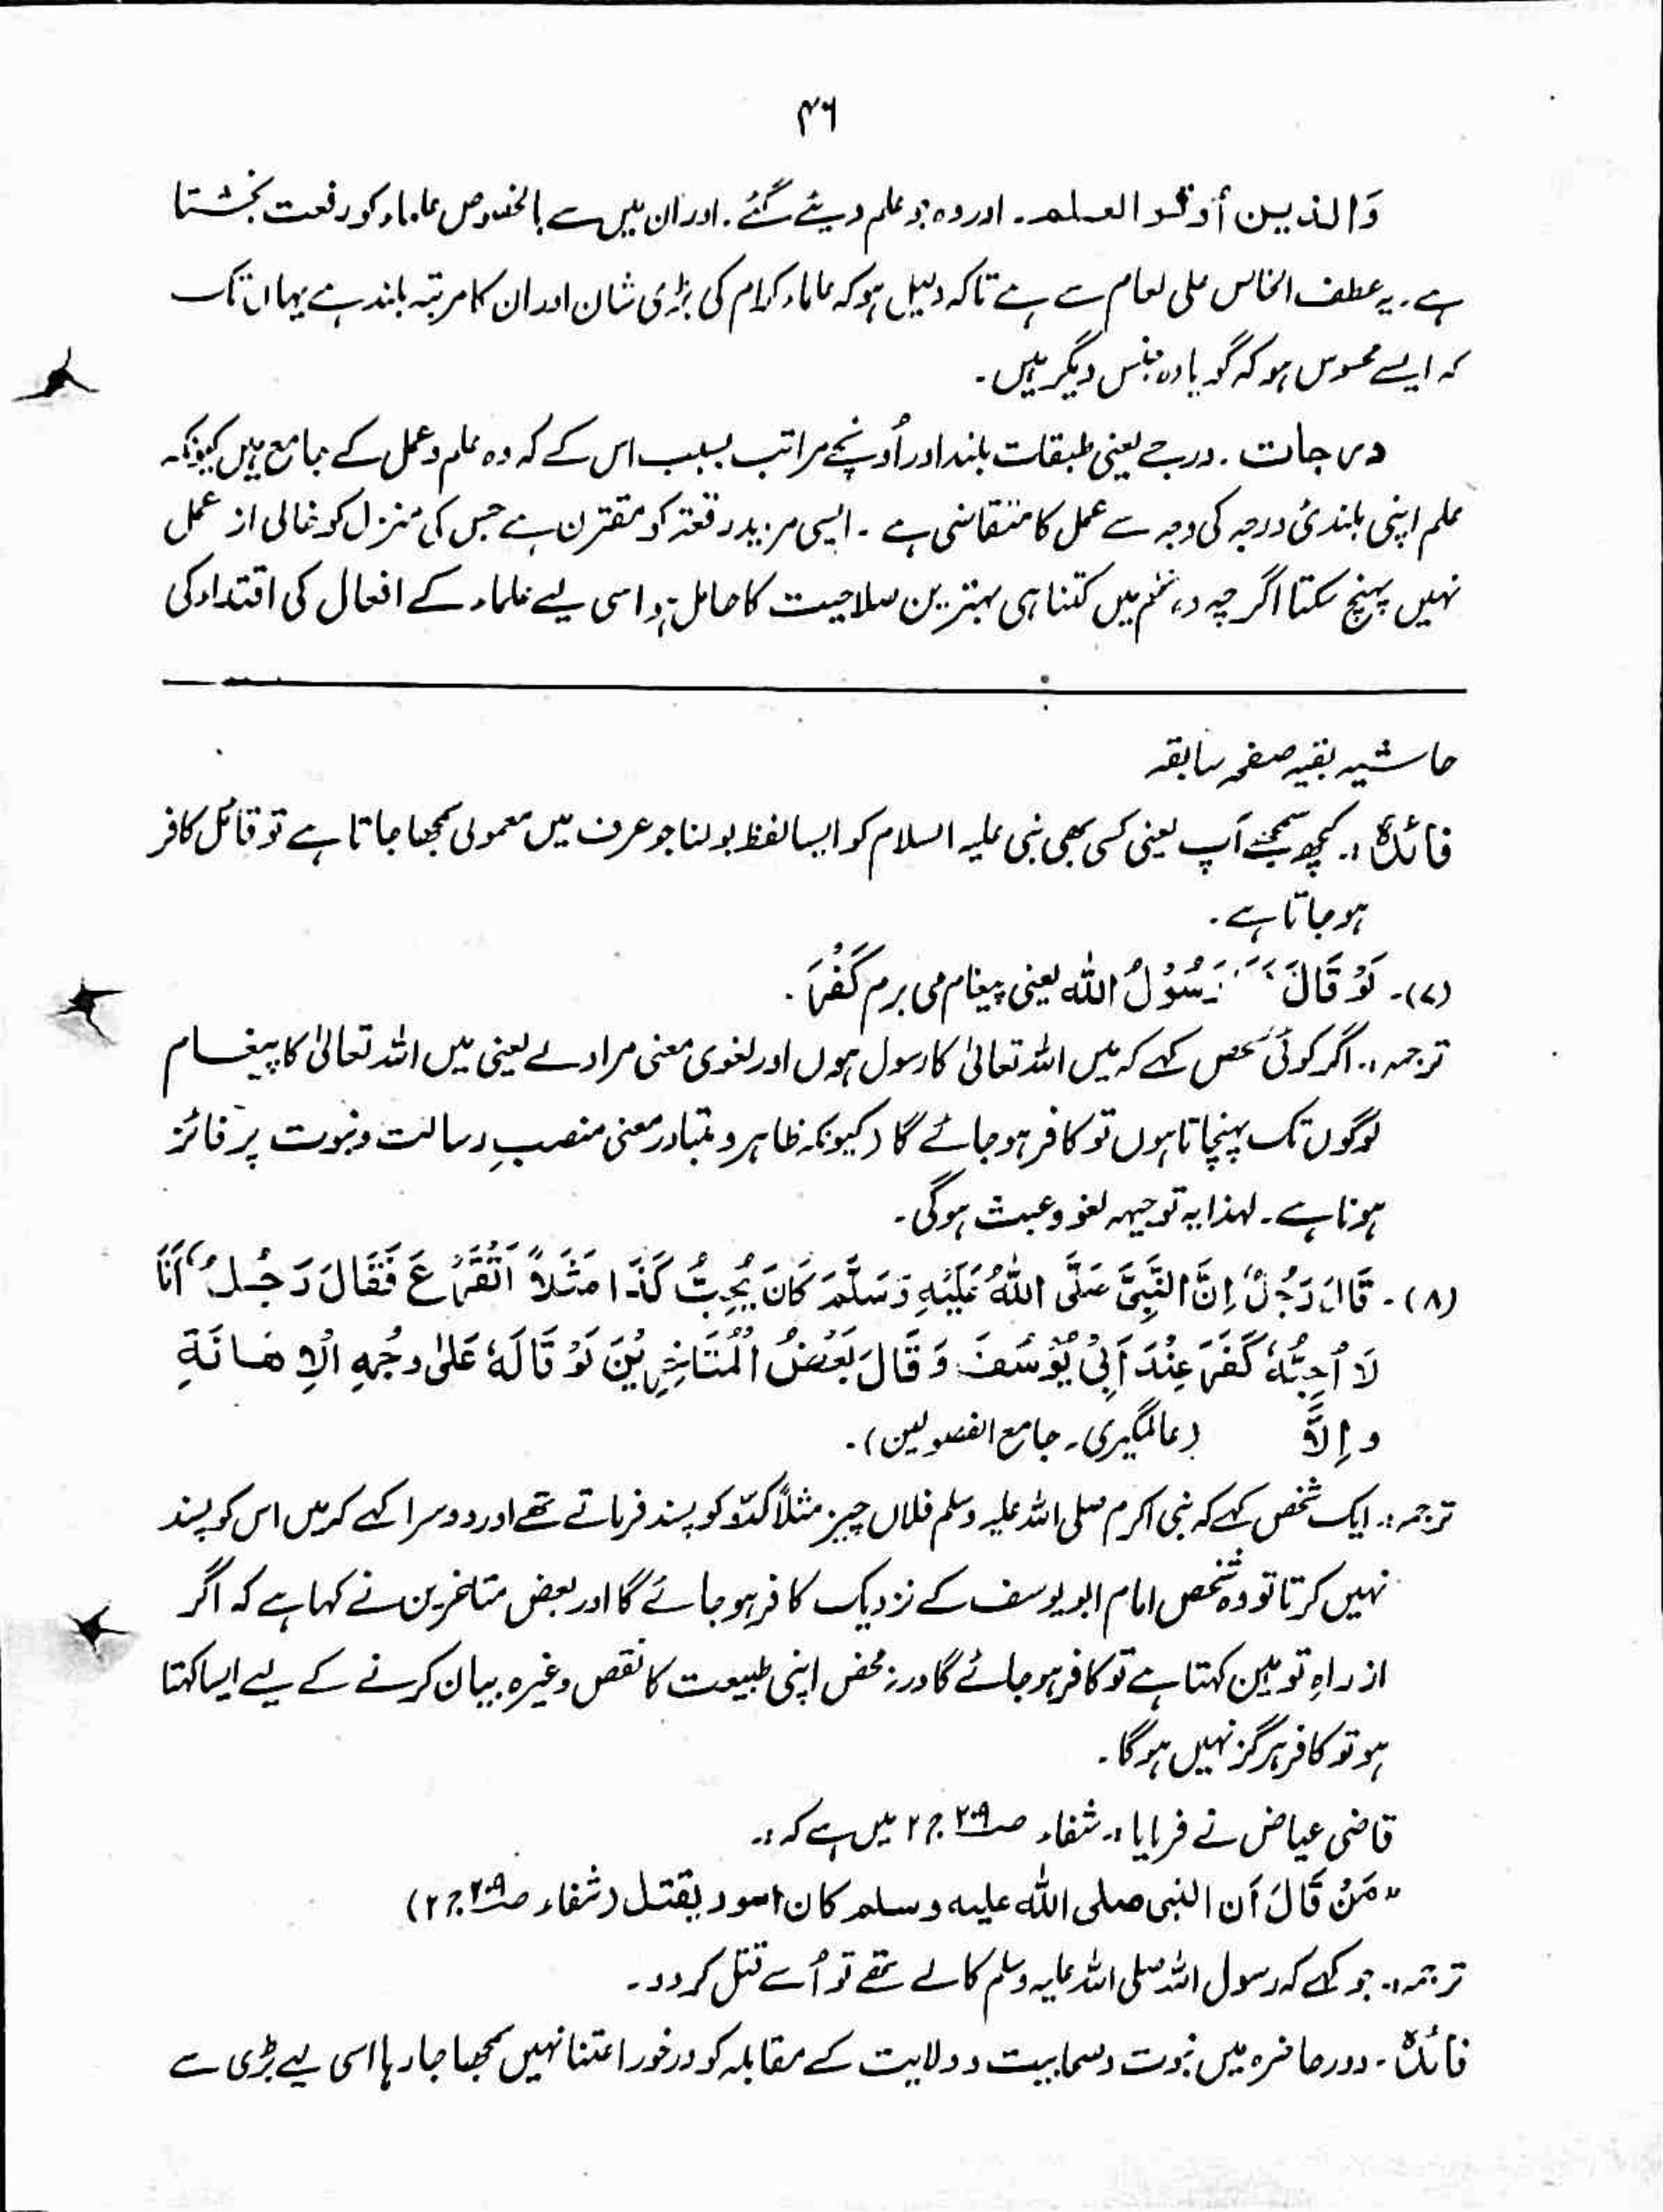 ۴۶
وَالذین أوتوا العلم۔ اور وہ جو علم دیئے گئے۔ اور ان میں سے بالخصوص علماء کو رفعت بخشتا
ہے۔ یہ عطف الخاص علی لعام سے ہے تاکہ دلیل ہو کہ علماء کرام کی بڑی شان اور ان کا مرتبہ بلند ہے یہاں تک
کہ ایسے محسوس ہو کہ گویا وہ جنس دیگر ہیں۔
درجات۔ درجے یعنی طبقات بلند اور اُونچے مراتب بسبب اس کے کہ وہ علم و عمل کے جامع ہیں کیونکہ
علم اپنی بلندئ درجہ کی وجہ سے عمل کا متقاضی ہے۔ ایسی مزید رفعۃ کو مقترن ہے جس کی منزل کو خالی از عمل
نہیں پہنچ سکتا اگرچہ وہ علم میں کتنا ہی بہترین صلاحیت کا حامل ہو اسی لیے علماء کے افعال کی اقتداء کی
حاشیہ بقیہ صفحہ سابقہ
فائدہ :۔ کچھ سمجھے آپ یعنی کسی بھی نبی علیہ السلام کو ایسا لفظ بولنا جو عرف میں معمولی سمجھا جاتا ہے تو قائل کافر
ہو جاتا ہے۔
(۷)۔ لَوْ قَالَ رَسُوْلُ اللّٰه یعنی پیغام می برم کَفَرَ۔
ترجمہ :۔ اگر کوئی شخص کہے کہ میں اللہ تعالیٰ کا رسول ہوں اور لغوی معنی مراد لے یعنی میں اللہ تعالیٰ کا پیغام
لوگوں تک پہنچاتا ہوں تو کافر ہو جائے گا (کیونکہ ظاہر و متبادر معنی منصبِ رسالت و نبوت پر فائز
ہونا ہے۔ لہذا یہ توجیہہ لغو و عبث ہوگی۔
(۸)۔ قَالَ رَجُلٌ اِنَّ النَّبِیَّ صَلَّی اللّٰهُ عَلَیْهِ وَسَلَّمَ کَانَ یُحِبُّ کَذَا مَثَلاً اَلْقَرْعَ فَقَالَ رَجُلٌ اَنَا
لَا اُحِبُّهٗ کَفَرَ عِنْدَ اَبِیْ یُوْسُفَ وَ قَالَ بَعْضُ الْمُتَاَخِّرِیْنَ لَوْ قَالَهٗ عَلٰی وَجْهِ الْاِهَانَةِ
و اِلَّا (عالمگیری۔ جامع الفصولین)۔
ترجمہ :۔ ایک شخص کہے کہ نبی اکرم صلی اللہ علیہ وسلم فلاں چیز مثلاً کدّو کو پسند فرماتے تھے اور دوسرا کہے کہ میں اس کو پسند
نہیں کرتا تو وہ شخص امام ابو یوسف کے نزدیک کافر ہو جائے گا اور بعض متاخرین نے کہا ہے کہ اگر
از راہِ توہین کہتا ہے تو کافر ہو جائے گا ورنہ محض اپنی طبیعت کا نقص وغیرہ بیان کرنے کے لیے ایسا کہتا
ہو تو کافر ہرگز نہیں ہو گا۔
قاضی عیاض نے فرمایا :۔ شفاء صـ۲۰۹ ج۲ میں ہے کہ :۔
"مَنْ قَالَ اَن النبی صلی اللّٰه علیه وسلم کان اسود یقتل (شفاء صـ۲۰۹ ج۲)
ترجمہ :۔ جو کہے کہ رسول اللہ صلی اللہ علیہ وسلم کالے تھے تو اُسے قتل کر دو۔
فائدہ۔ دور حاضرہ میں نبوت و صحابیت و ولایت کے مقابلہ کو درخور اعتنا نہیں سمجھا جا رہا اسی لیے بڑی سے